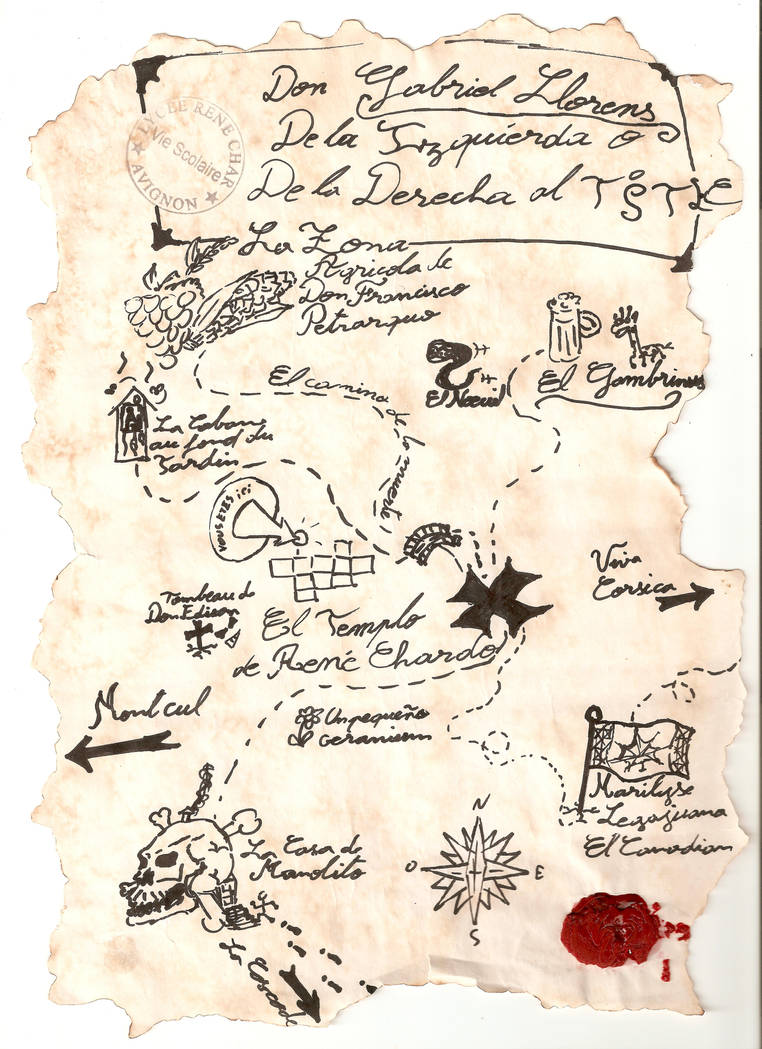 LYCEE RENE CHAR
Vie Scolaire
AVIGNON
Don Gabriel Llorens
De la Izquierda o
De la Derecha al
La Zona
Agricola de
Don Francisco
Petrarquo
El camina de la muerte!
El Noeud
El Gambrinus
La Cabane
au fond du
Jardin
VOUS ETES ici
Viva
Corsica
Tombeau de
Don Edison
El Templo
de René Chardo
Montcul
Un pequeño
Geranium
Marilyse
Legajuana
El Canadian
La Casa de
Manolito
N
O
E
S